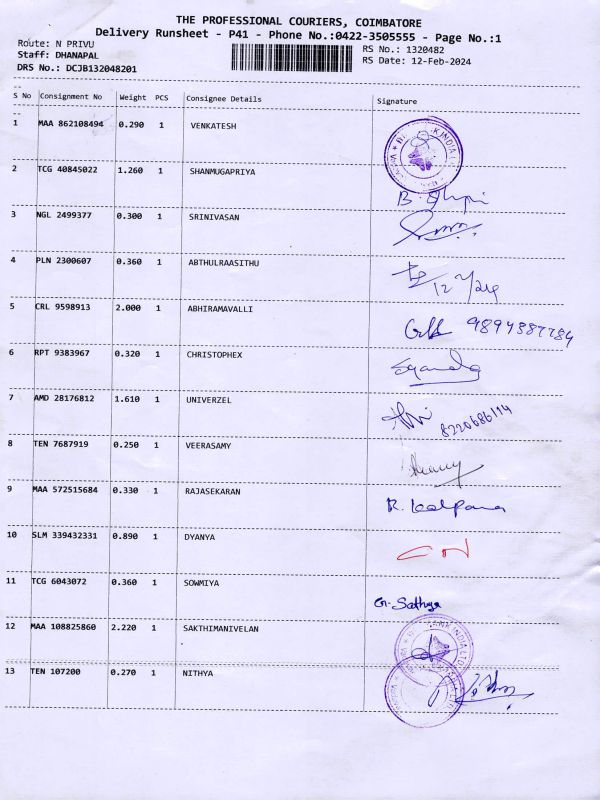 THE PROFESSIONAL COURIERS, COIMBATORE
Delivery Runsheet - P41 - Phone No.:0422-3505555 - Page No.:1
Route: N PRIVU
RS No.: 1320482
Staff: DHANAPAL
RS Date: 12-Feb-2024
DRS No.: DCJB132048201
S No Consignment No Weight PCS Consignee Details Signature
1 MAA 862108494 0.290 1 VENKATESH
2 TCG 40845022 1.260 1 SHANMUGAPRIYA
3 NGL 2499377 0.300 1 SRINIVASAN
4 PLN 2300607 0.360 1 ABTHULRAASITHU
5 CRL 9598913 2.000 1 ABHIRAMAVALLI
6 RPT 9383967 0.320 1 CHRISTOPHEX
7 AMD 28176812 1.610 1 UNIVERZEL
8220686114
8 TEN 7687919 0.250 1 VEERASAMY
9 MAA 572515684 0.330 1 RAJASEKARAN R. Kalpana
10 SLM 339432331 0.890 1 DYANYA
11 TCG 6043072 0.360 1 SOWMIYA G. Sathya
12 MAA 108825860 2.220 1 SAKTHIMANIVELAN
13 TEN 107200 0.270 1 NITHYA